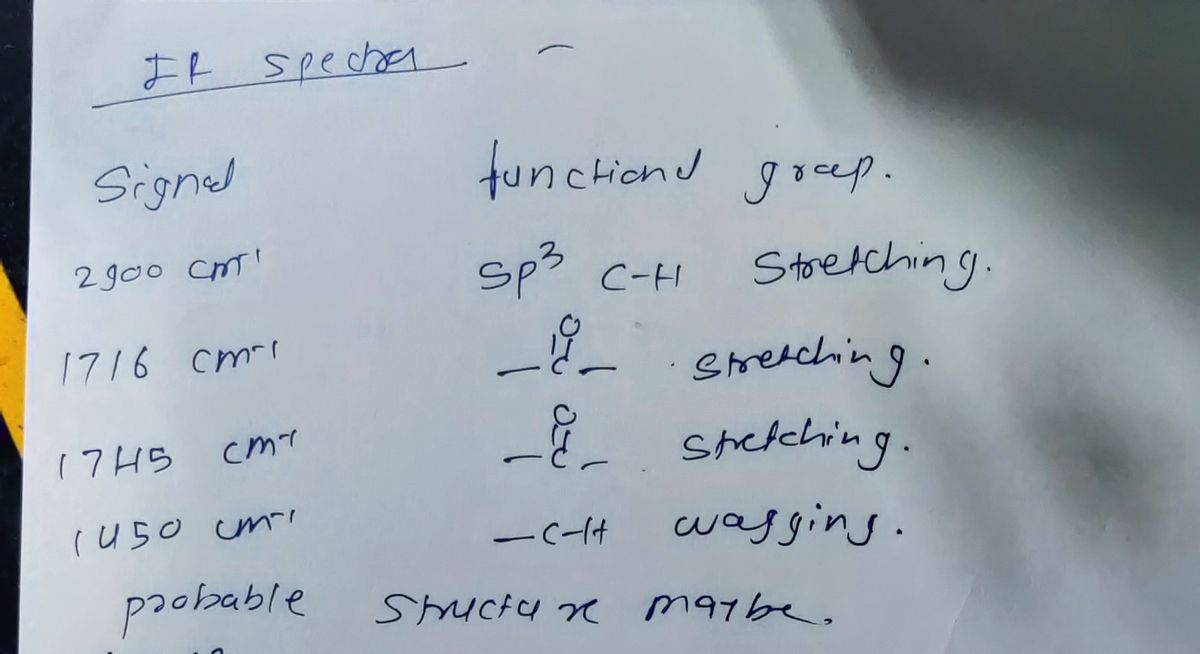 IR spectra -
Signal functional group.
2900 cm⁻¹ sp³ C-H Stretching.
1716 cm⁻¹ -C(=O)- stretching.
1745 cm⁻¹ -C(=O)- stretching.
1450 cm⁻¹ -C-H wagging.
probable Structure maybe.